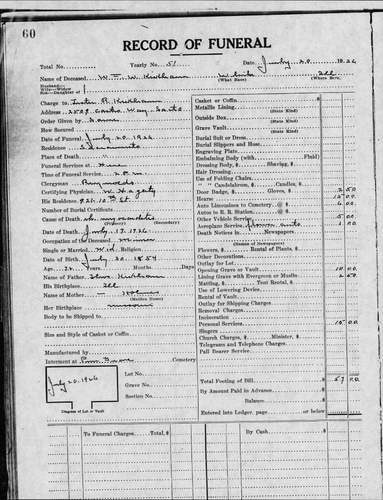 60
RECORD OF FUNERAL
Total No. Yearly No. 51 Date July 20 1926
Name of Deceased Wm W. Kirkham White Ill
(What Race) (Where Born)
Husband—
Wife—Widow
Son—Daughter of
Charge to Lester R. Kirkham
Address 2509 Castro Way, Sacto
Order Given by Same
How Secured
Date of Funeral July 20 1926
Residence Sacramento
Place of Death "
Funeral Services at Here
Time of Service 2 P.M.
Clergyman Reynolds
Certifying Physician W. Hagerty
His Residence
Number of Burial Certificate
Cause of Death Ch. myocarditis
(Primary) (Secondary)
Date of Death July 17, 1926
Occupation of the Deceased miner
Single or Married Wid Religion
Date of Birth July 20 1854
Age Years Months Days
Name of Father Kirkham
His Birthplace Ill
Name of Mother Holmes
(Maiden Name)
Her Birthplace Missouri
Body to be Shipped to
Size and Style of Casket or Coffin
Manufactured by
Interment at Cemetery
Lot No.
Grave No.
Section No.
July 20, 1926
Diagram of Lot or Vault
Casket or Coffin $
Metallic Lining
(State Kind)
Outside Box
(State Kind)
Grave Vault
(State Kind)
Burial Suit or Dress
Burial Slippers and Hose
Engraving Plate
Embalming Body (with Fluid)
Dressing Body, $ Shaving, $
Hair Dressing
Use of Folding Chairs
" " Candelabrum, $ Candles, $
Door Badge, $ Gloves, $ 2 50
Hearse 15 00
Auto Limousines to Cemetery @ $ 6 00
Autos to R. R. Station @ $
Other Vehicle Service 5 00
Aeroplane Service flowers auto
Death Notices in Newspapers
(Names of Newspapers)
Flowers, $ Rental of Plants, $
Other Decorations
Outlay for Lot
Opening Grave or Vault 10 00
Lining Grave with Evergreen or Muslin 2 50
Matting, $ Tent Rental, $
Use of Lowering Device
Rental of Vault
Outlay for Shipping Charges
Removal Charges
Incineration
Personal Services 15 00
Singers
Church Charges, $ Minister, $
Telegrams and Telephone Charges
Pall Bearer Service
Total Footing of Bill $ 57 00
By Amount Paid in Advance
Balance $
Entered into Ledger, page or below
To Funeral Charges Total, $ By Cash $